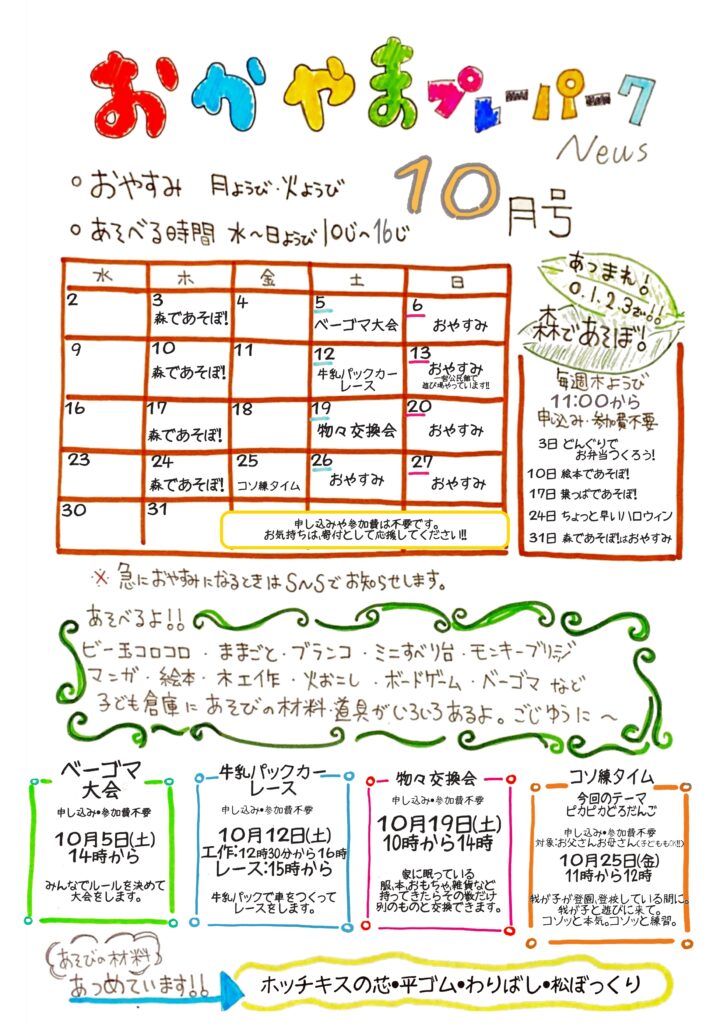 おかやまプレーパーク
News
10月号
○おやすみ 月ようび・火ようび
○あそべる時間 水〜日ようび 10じ〜16じ
水 木 金 土 日
2 3 4 5 6
森であそぼ! ベーゴマ大会 おやすみ
9 10 11 12 13
森であそぼ! 牛乳パックカー
レース
おやすみ
一宮公民館で
遊び場やっています!!
16 17 18 19 20
森であそぼ! 物々交換会 おやすみ
23 24 25 26 27
森であそぼ! コソ練タイム おやすみ おやすみ
30 31
申し込みや参加費は不要です。
お気持ちは、寄付として応援してください!!
あつまれ!
0.1.2.3さい!!
森であそぼ!
毎週木ようび
11:00から
申込み・参加費不要
3日 どんぐりで
お弁当つくろう!
10日 絵本であそぼ!
17日 葉っぱであそぼ!
24日 ちょっと早いハロウィン
31日 森であそぼ!はおやすみ
※急におやすみになるときはSNSでお知らせします。
あそべるよ!!
ビー玉コロコロ・ままごと・ブランコ・ミニすべり台・モンキーブリッジ
マンガ・絵本・木工作・火おこし・ボードゲーム・ベーゴマなど
子ども倉庫にあそびの材料・道具がいろいろあるよ。ごじゆうに〜
ベーゴマ
大会
申し込み•参加費不要
10月5日(土)
14時から
みんなでルールを決めて
大会をします。
牛乳パックカー
レース
申し込み•参加費不要
10月12日(土)
工作:12時30分から16時
レース:15時から
牛乳パックで車をつくって
レースをします。
物々交換会
申し込み•参加費不要
10月19日(土)
10時から14時
家に眠っている
服、本、おもちゃ、雑貨など
持ってきたらその数だけ
別のものと交換できます。
コソ練タイム
今回のテーマ
ピカピカどろだんご
申し込み•参加費不要
対象:お父さんお母さん(子どももOK!!)
10月25日(金)
11時から12時
我が子が登園、登校している間に。
我が子と遊びに来て。
コソッと本気。コソッと練習。
あそびの材料
あつめています!!
ホッチキスの芯•平ゴム•わりばし•松ぼっくり